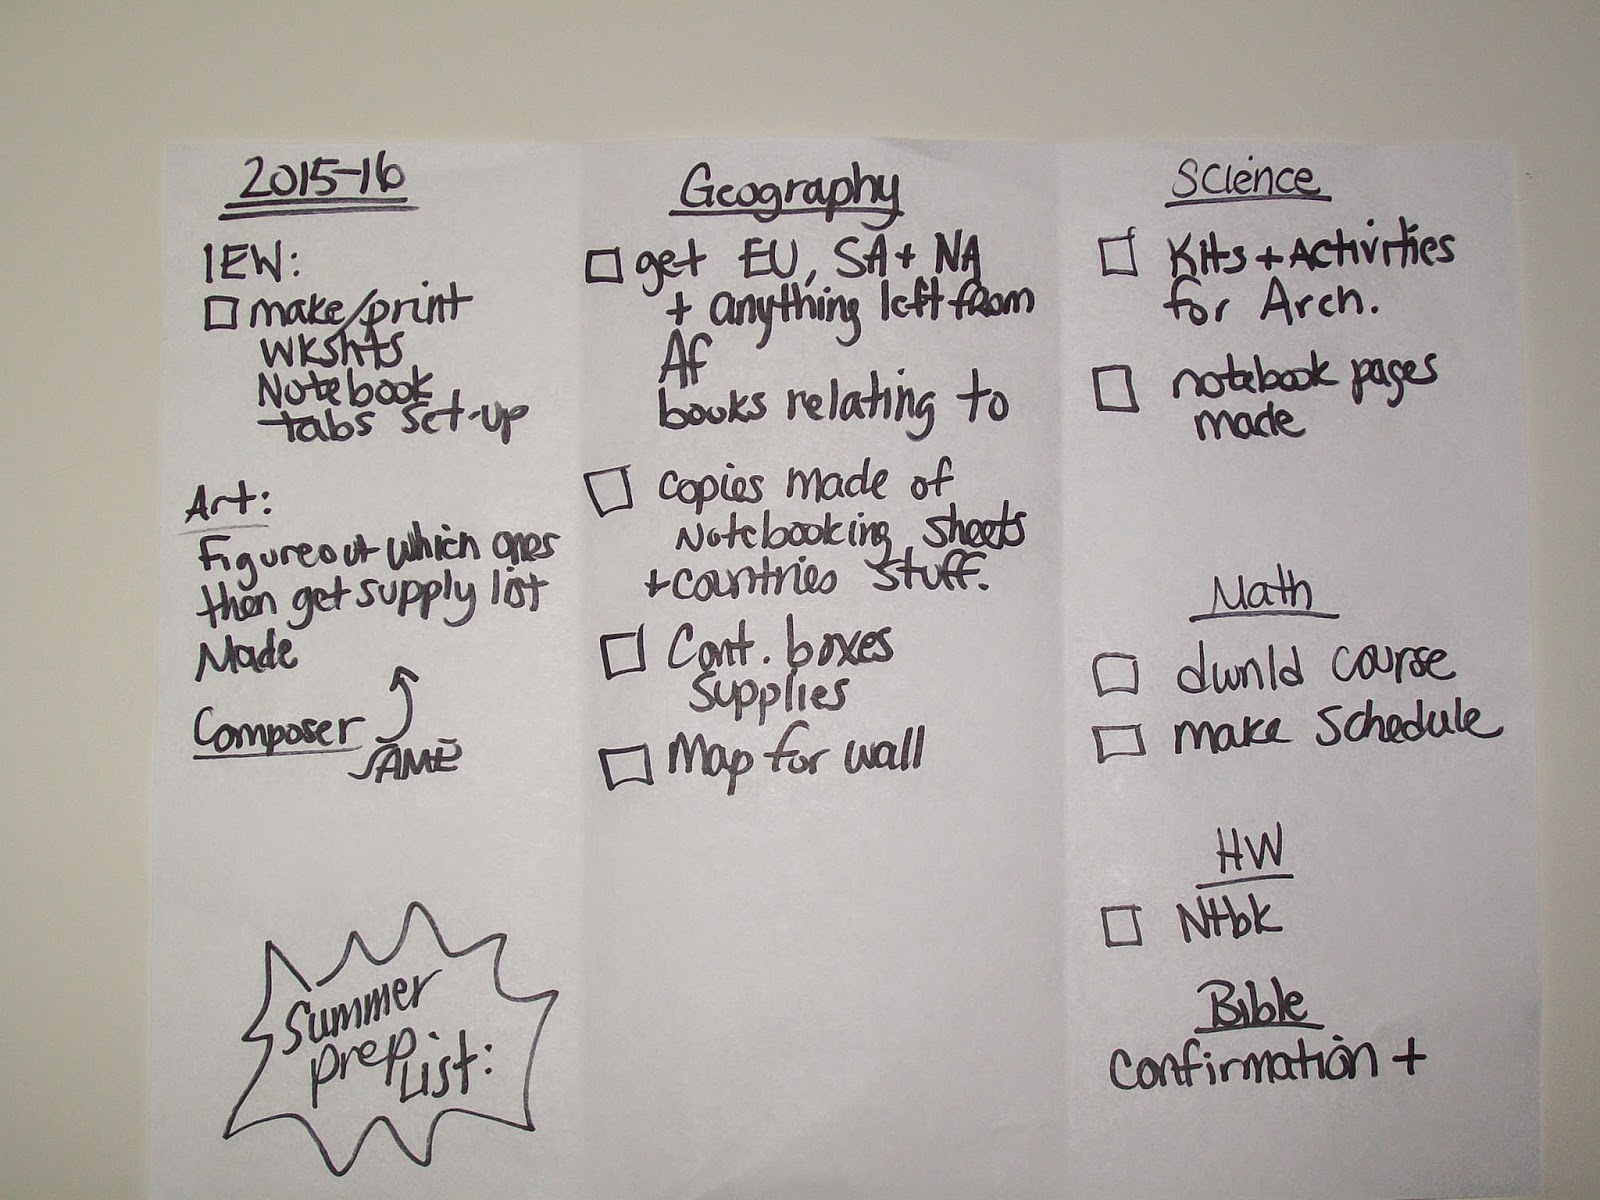 2015-16
IEW:
make/print
wkshts
Notebook
tabs set-up
Art:
Figure out which ones
then get supply list
Made
Composer
SAME
Summer
prep list:
Geography
get EU, SA + NA
+ anything left from
Af
books relating to
copies made of
Notebooking sheets
+ countries stuff.
Cont. boxes
supplies
Map for wall
Science
Kits + Activities
for Arch.
notebook pages
made
Math
dwnld course
make schedule
HW
Ntbk
Bible
Confirmation +